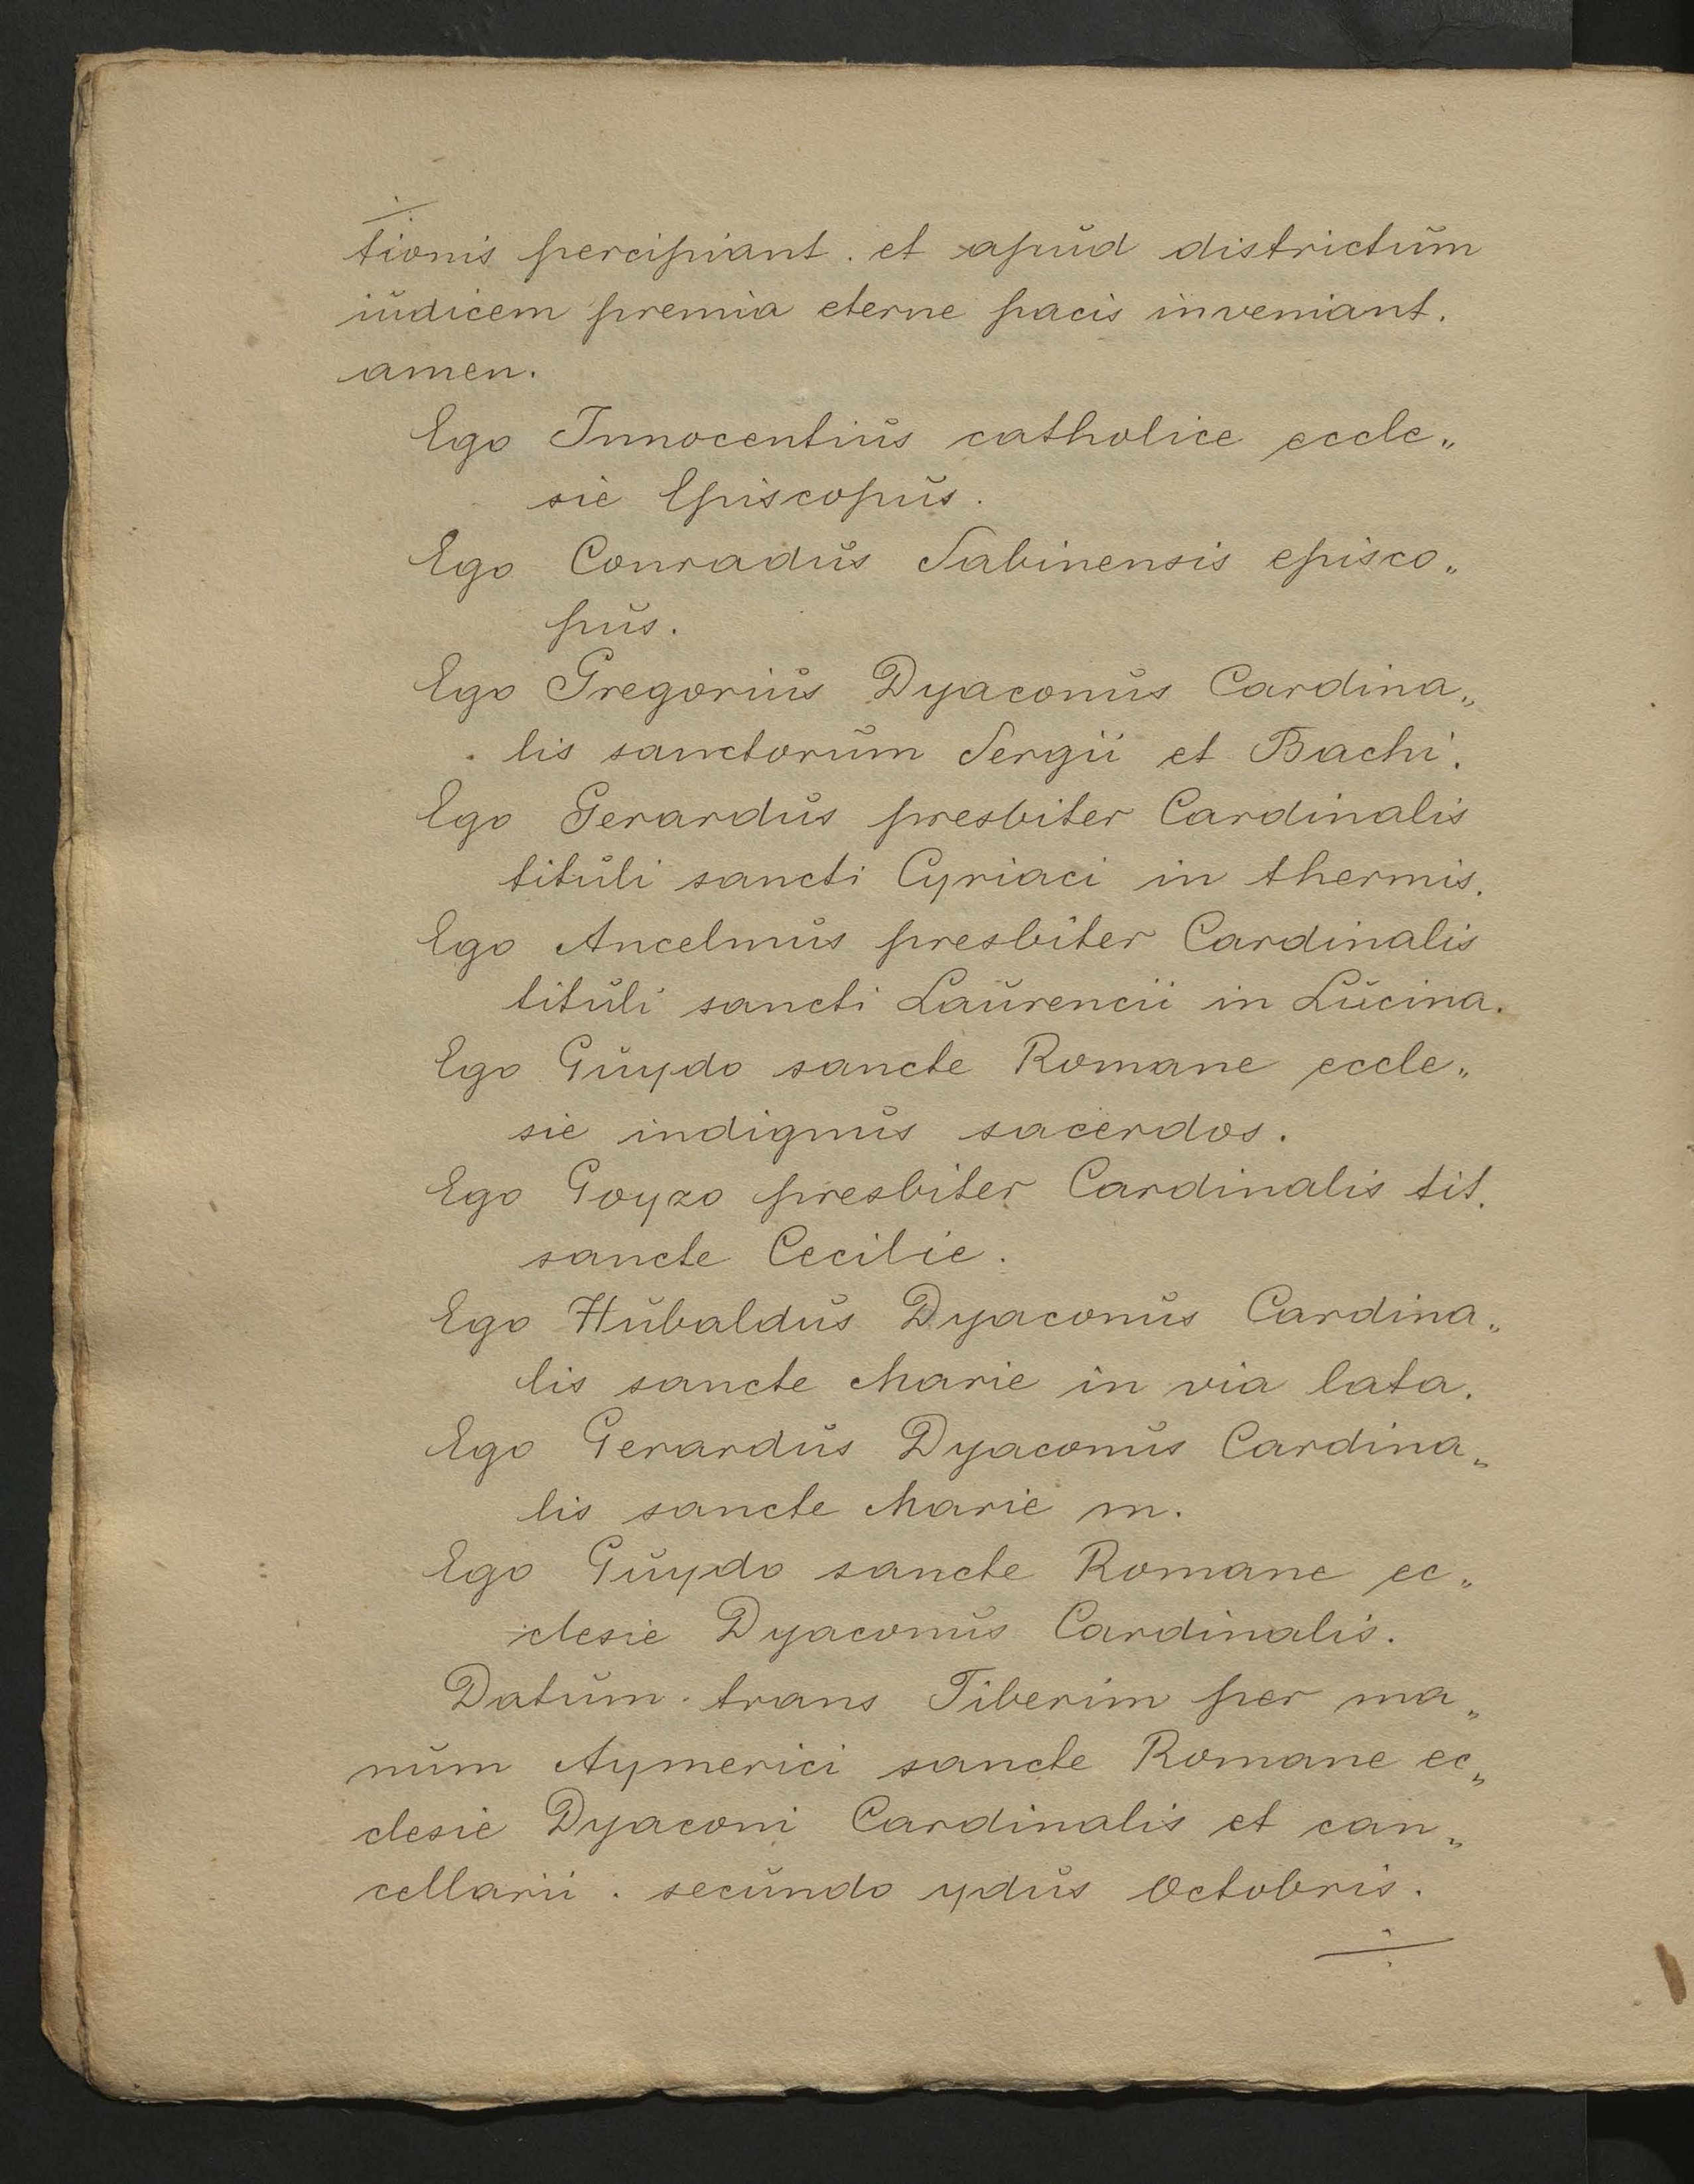 tionis percipiant . et apud districtum
iudicem premia eterne pacis inveniant.
amen.
Ego Innocentius catholice eccle„
sie Episcopus.
Ego Conradus Sabinensis episco„
pus.
Ego Gregorius Dyaconus Cardina„
lis sanctorum Sergii et Bachi.
Ego Gerardus presbiter Cardinalis
tituli sancti Cyriaci in thermis.
Ego Ancelmus presbiter Cardinalis
tituli sancti Laurencii in Lucina.
Ego Guydo sancte Romane eccle„
sie indignus sacerdos.
Ego Goyzo presbiter Cardinalis tit.
sancte Cecilie.
Ego Hubaldus Dyaconus Cardina„
lis sancte Marie in via lata.
Ego Gerardus Dyaconus Cardina„
lis sancte Marie m.
Ego Guydo sancte Romane ec„
clesie Dyaconus Cardinalis.
Datum . trans Tiberim per ma„
num Aymerici sancte Romane ec„
clesie Dyaconi Cardinalis et can„
cellarii . secundo ydus Octobris.